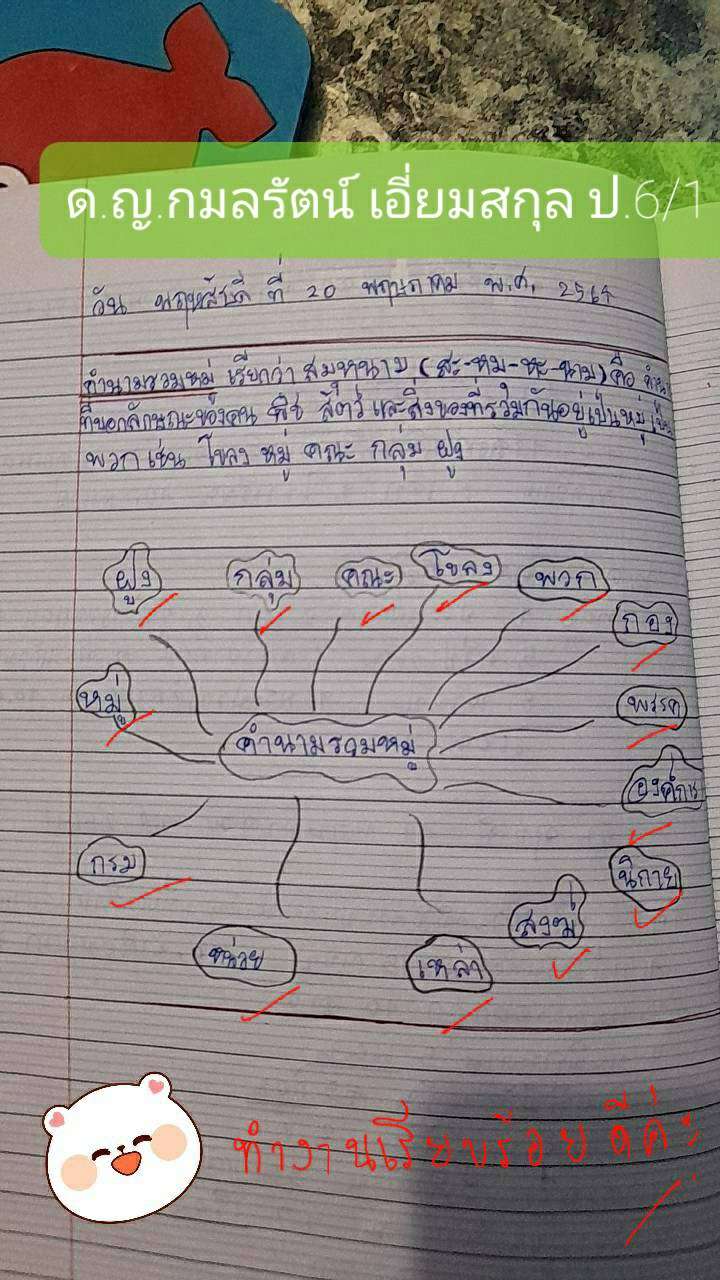 ด.ญ.กมลรัตน์ เอี่ยมสกุล ป.6/1
วัน พฤหัสบดี ที่ 20 พฤษภาคม พ.ศ. 2564
คำนามรวมหมู่ เรียกว่า สมุหนาม (สะ-หมุ-หะ-นาม) คือ
ที่บอกลักษณะของคน พืช สัตว์ และสิ่งของที่รวมกันอยู่เป็นหมู่ เป็น
พวก เช่น โขลง หมู่ คณะ กลุ่ม ฝูง
ฝูง กลุ่ม คณะ โขลง พวก
กอง
หมู่ พรรค
คำนามรวมหมู่
องค์การ
กรม นิกาย
สงฆ์
หน่วย เหล่า
ทำงานเรียบร้อยดีค่ะ